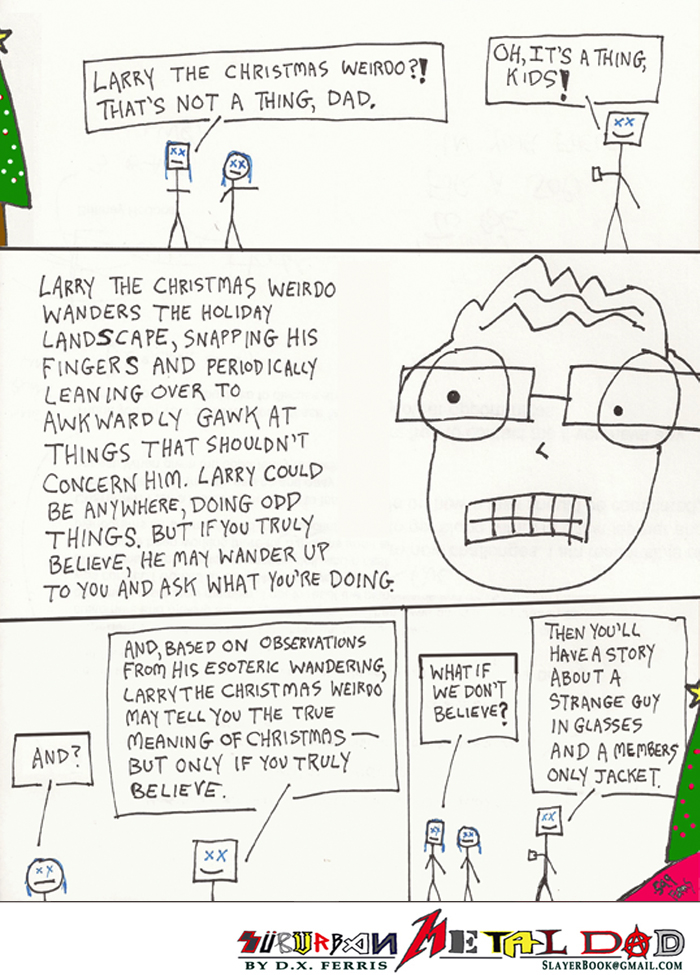 LARRY THE CHRISTMAS WEIRDO?!
THAT'S NOT A THING, DAD.
OH, IT'S A THING,
KIDS!
LARRY THE CHRISTMAS WEIRDO
WANDERS THE HOLIDAY
LANDSCAPE, SNAPPING HIS
FINGERS AND PERIODICALLY
LEANING OVER TO
AWKWARDLY GAWK AT
THINGS THAT SHOULDN'T
CONCERN HIM. LARRY COULD
BE ANYWHERE, DOING ODD
THINGS. BUT IF YOU TRULY
BELIEVE, HE MAY WANDER UP
TO YOU AND ASK WHAT YOU'RE DOING
AND?
AND, BASED ON OBSERVATIONS
FROM HIS ESOTERIC WANDERING,
LARRY THE CHRISTMAS WEIRDO
MAY TELL YOU THE TRUE
MEANING OF CHRISTMAS—
BUT ONLY IF YOU TRULY
BELIEVE.
WHAT IF
WE DON'T
BELIEVE?
THEN YOU'LL
HAVE A STORY
ABOUT A
STRANGE GUY
IN GLASSES
AND A MEMBERS
ONLY JACKET.
SÜBURBAN METAL DAD
BY D.X. FERRIS
SLAYERBOOK@GMAIL.COM